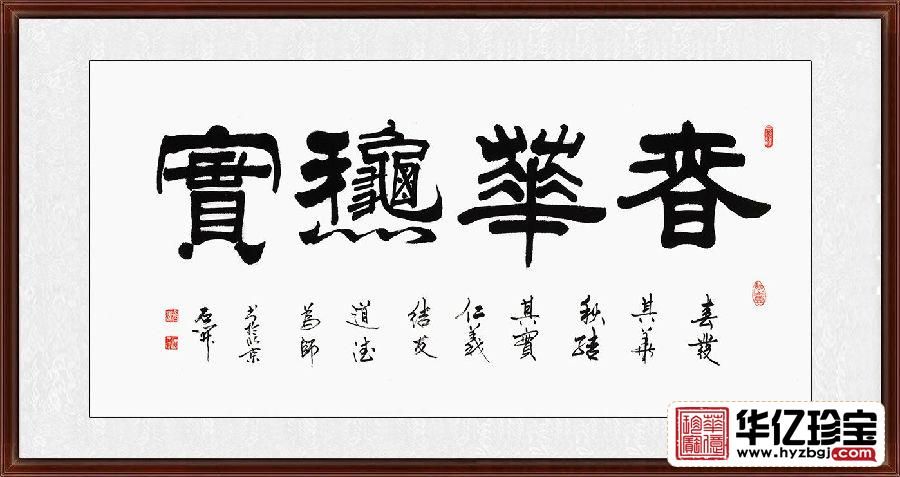 春華龝實
春發
其華
秋結
其實
仁義
結友
道德
為師
书於北京
石開
华亿珍宝
www.hyzbgj.com